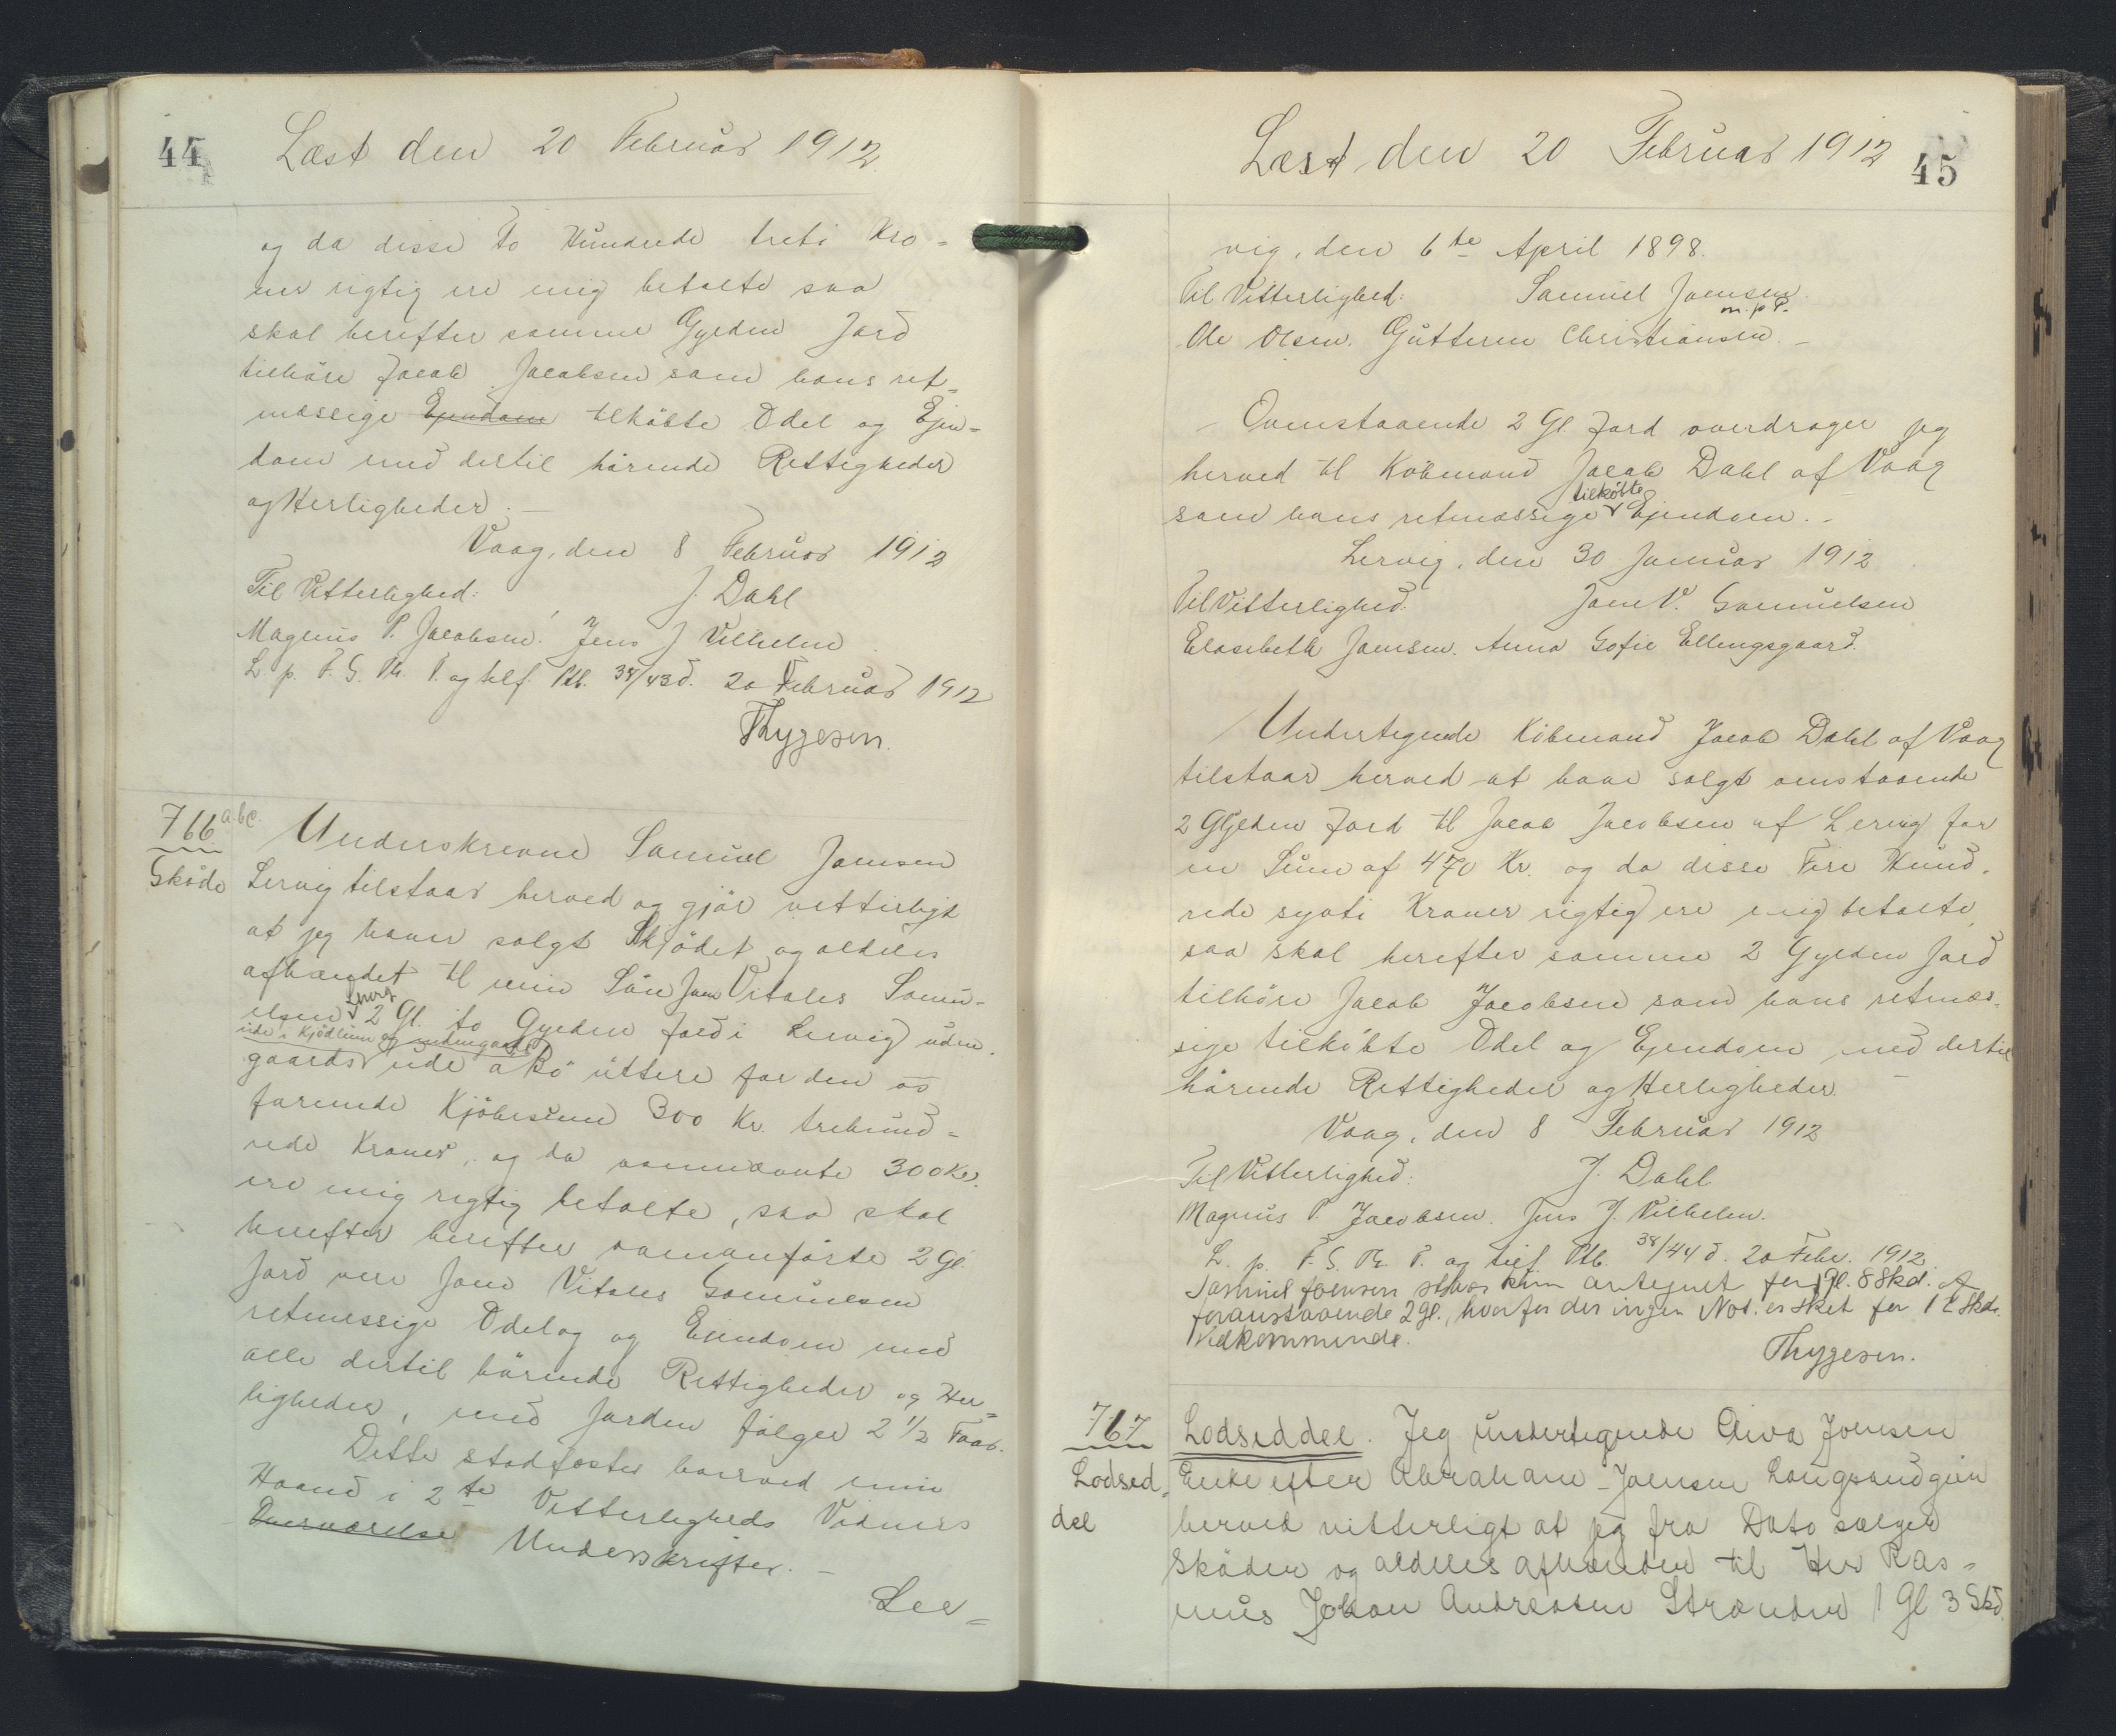 44 Læst den 20 Februar 1912.
og da disse to Hundrede treti Kro=
ner rigtig ere mig betalte saa
skal herefter samme Gylden Jord
tilhøre Jacob Jacobsen som hans ret=
mæssige Ejendom tilkøbte Odel og Ejen=
dom med dertil hørende Rettigheder
og Herligheder.—
Vaag, den 8 Februar 1912
Til Vitterlighed: J. Dahl
Magnus P. Jacobsen. Jens J Vilhelm
L. p. F. S. Th. P. og tilf. Ptb. 38/43 d. 20 Februar 1912
Thygesen.
766 abc.
Skøde
Underskrevne Samuel Joensen
Lervig tilstaar herved og gjør vitterligt
at jeg haver solgt Skjødet og aldeles
afhændet til min Søn Joen Vitales Samu-
elsen Lervig 2 Gl. to Gylden Jord i Lervig uden-
gaards ude a Bø uttere for den os
farende Kjøbesum 300 Kr. trehund=
rede Kroner, og da ovennævnte 300 Kr.
ere mig rigtig betalte, saa skal
herefter herefter ovenanførte 2 Gl.
Jord vere Joen Vitales Samuelsen
retmessige Odel og og Eiendom med
alle dertil hørende Rettigheder og Her=
ligheder, med Jorden følger 2 1/2 Faar.
Dette stadfæster herved min
Haand i 2de Vitterligheds Vidners
Overværelse Underskrifter.—
Ler=
Læst den 20 Februar 1912 45
vig, den 6te April 1898.
Til Vitterlighed: Samuel Joensen
m. p. P.
Ole Olsen. Gutterm Christiansen.—
Ovenstaaende 2 Gl. Jord overdrager jeg
herved til Købmand Jacob Dahl af Vaag
som hans retmæssige tilkøbte Ejendom.—
Lervig, den 30 Januar 1912
Til Vitterlighed: Joen V. Samuelsen
Elasebeth Joensen. Anna Sofie Ellingsgaard.
Undertegnede Købmand Jacob Dahl af Vaag
tilstaar herved at have solgt omstaaende
2 Gylden Jord til Jacob Jacobsen af Lervig for
en Sum af 470 Kr. og da disse Fire Hund-
rede syvti Kroner rigtig ere mig betalte,
saa skal herefter samme 2 Gylden Jord
tilhøre Jacob Jacobsen som hans retmæs=
sige tilkøbte Odel og Ejendom med dertil
hørende Rettigheder og Herligheder.—
Vaag, den 8 Februar 1912
Til Vitterlighed: J. Dahl
Magnus P. Jacobsen. Jens J. Vilhelm.
L. p. F. S. Th. P. og tilf. Ptb. 38/44 d. 20 Febr. 1912.
Samuel Joensen staar kun antegnet for 1 Gl. 8 Skd. af
foranstaaende 2 Gl., hvorfor der ingen Not. er sket for 12 Skd.
Vedkommende.
Thygesen.
767
Lodsed=
del
Lodseddel. Jeg undertegnede Joensen
Enke efter Abraham Joensen Langsand gjør
herved vitterligt at jeg fra Dato sælger
Skøder og aldeles afhænder til Hr Ras=
mus Johan Andreasen Strænder 1 Gl 3 Skd